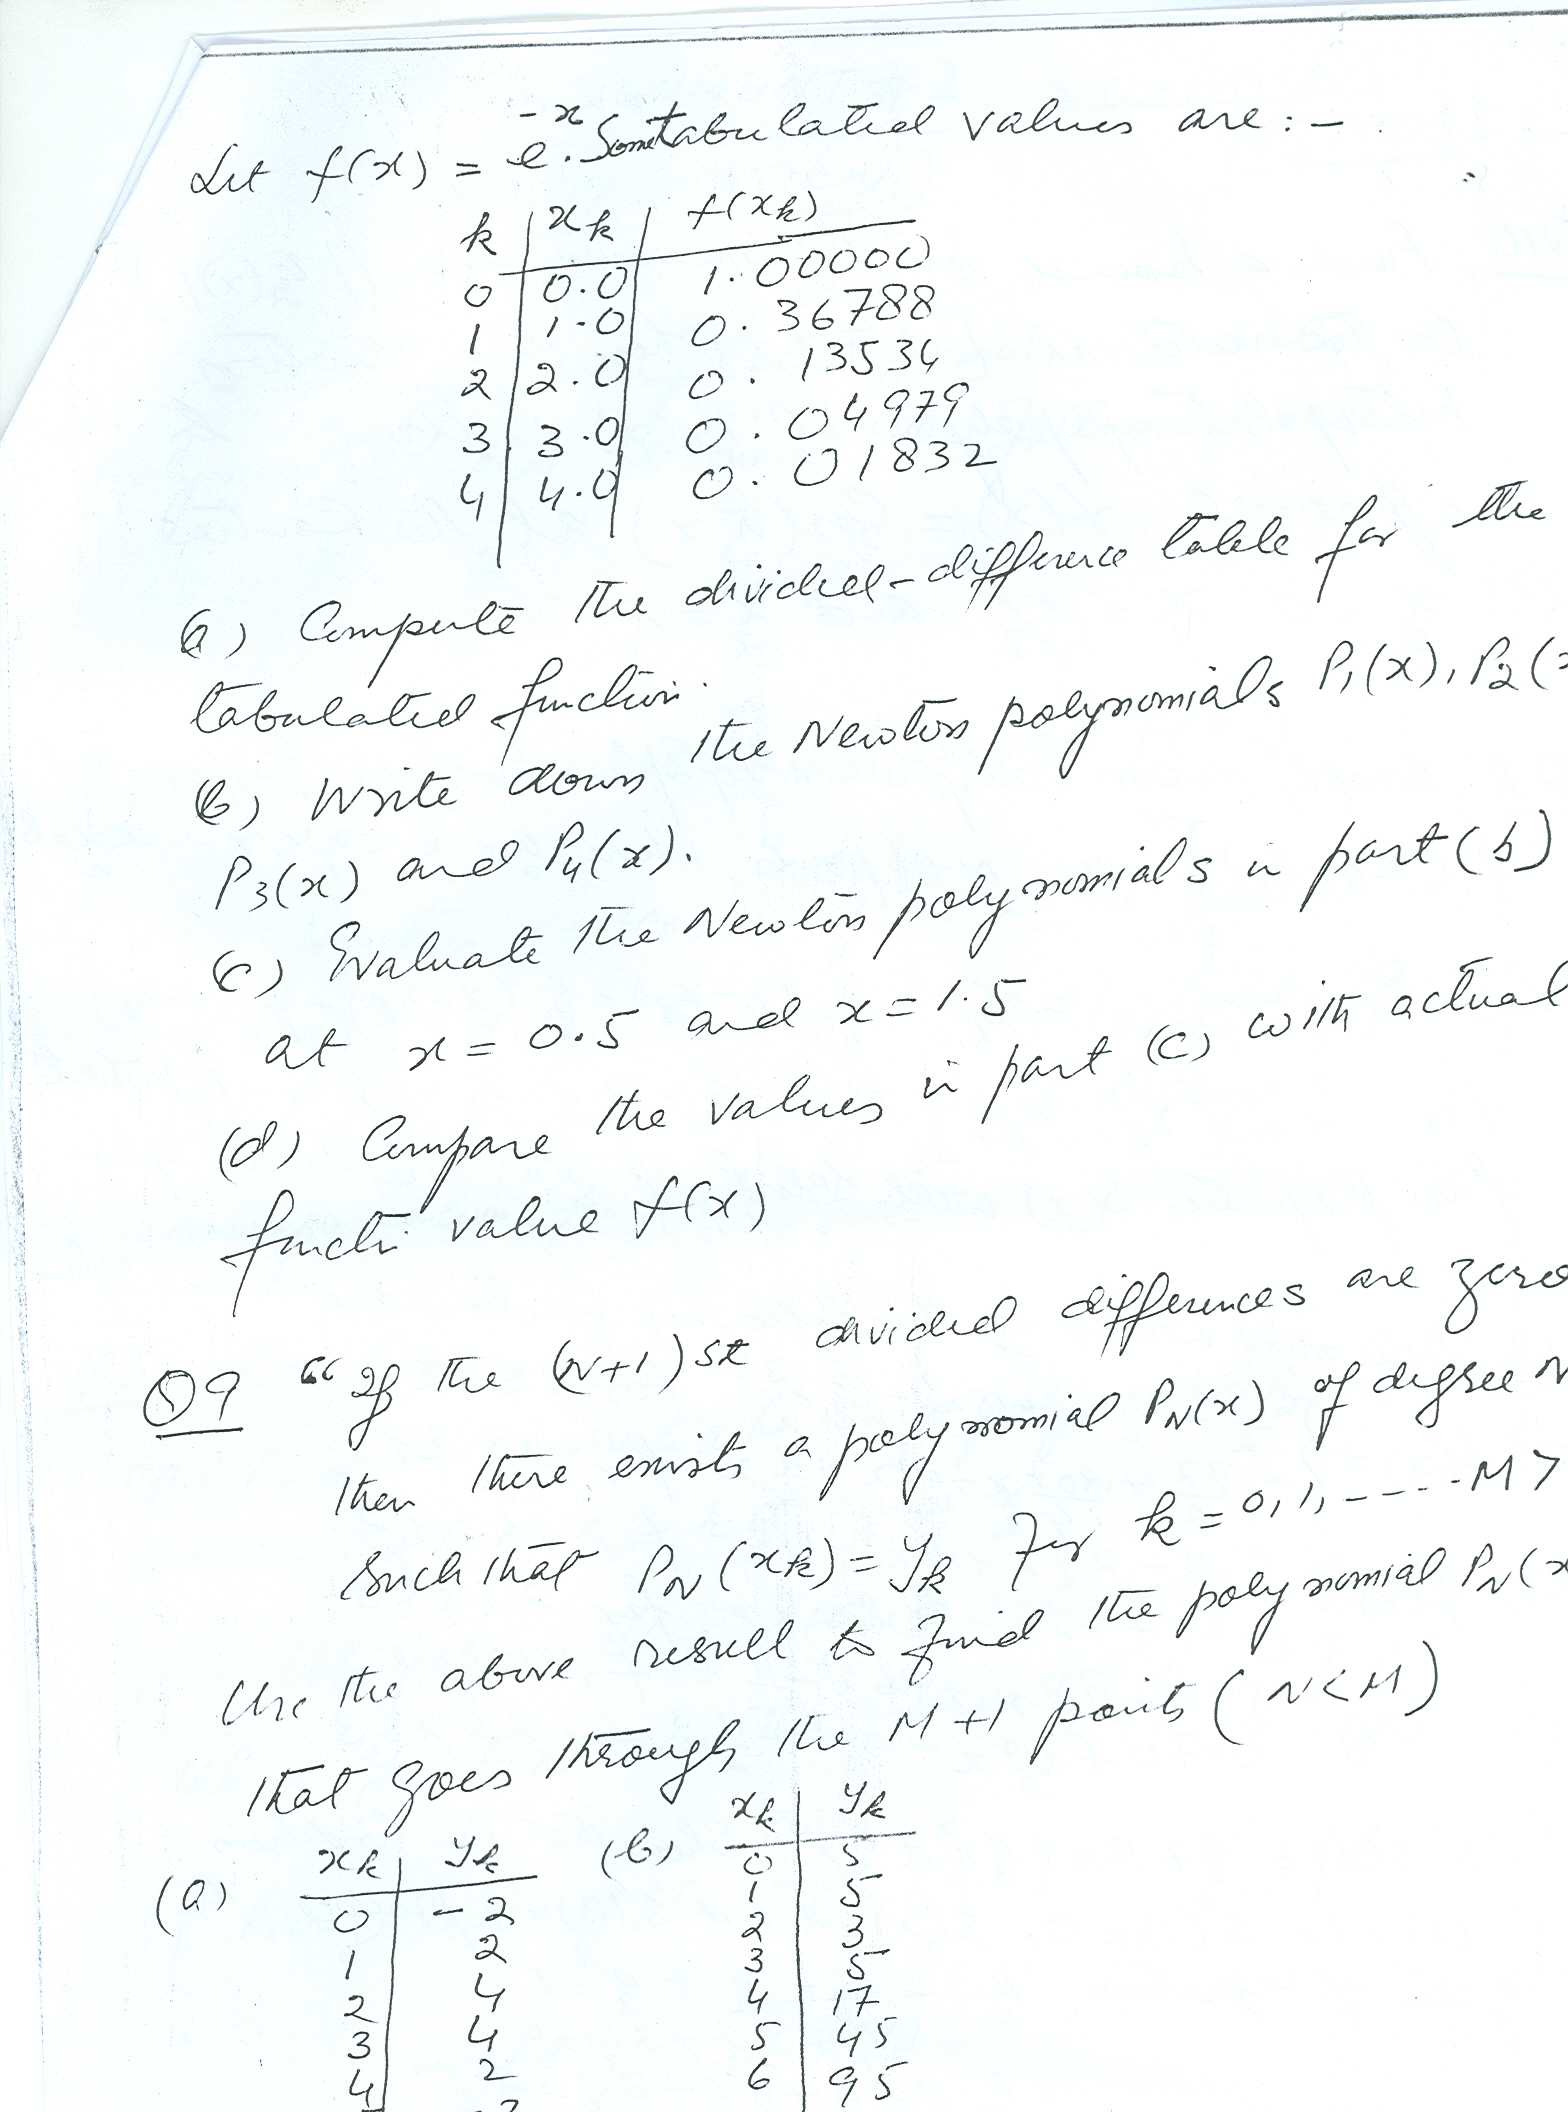 Let f(x) = e^-x. Some tabulated values are :-
k | xk | f(xk)
0 | 0.0 | 1.00000
1 | 1.0 | 0.36788
2 | 2.0 | 0.13534
3 | 3.0 | 0.04979
4 | 4.0 | 0.01832
a) Compute the divided-difference table for the
tabulated function.
(b) Write down the Newton polynomials P1(x), P2(
P3(x) and P4(x).
(c) Evaluate the Newton polynomials in part (b)
at x = 0.5 and x = 1.5
(d) Compare the values in part (c) with actual
functi value f(x)
Q9 "If the (N+1)st divided differences are zero
then there exists a polynomial PN(x) of degree N
such that PN(xk) = yk for k = 0, 1, ---- M >
Use the above result to find the polynomial PN(x
that goes through the M+1 points (N<M)
(a) xk | yk
0 | -2
1 | 2
2 | 4
3 | 4
4 | 2
(b) xk | yk
0 | 5
1 | 5
2 | 3
3 | 5
4 | 17
5 | 45
6 | 95